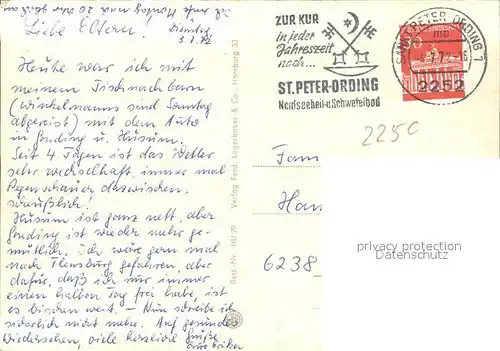 Liebe Eltern!
Dienstag
3.7.72
Heute war ich mit
meinem Tischnachbarn
(Winkelmanns sind Sonntag
abgereist) mit dem Auto
in Garding u. Husum.
Seit 4 Tagen ist das Wetter
sehr wechselhaft, immer mal
Regenschauer dazwischen.
scheußlich!
Husum ist ganz nett, aber
Garding ist wieder mehr ge-
mütlich. Ich wäre gern mal
nach Flensburg gefahren, aber
dafür, daß ich nur immer
einen halben Tag frei habe, ist
es bißchen weit. – Nun schreibe ich
sicherlich nicht mehr. Auf gesundes
Wiedersehen, viele herzliche Grüße
Best.-Nr. HH 29 Verlag Ferd. Lagerbauer & Co., Hamburg 33
ZUR KUR
in jeder
Jahreszeit
nach...
ST. PETER-ORDING
Nordseeheil-u. Schwefelbad
SANKT PETER-ORDING 1
2252
2250
Fam
Han
6238
privacy protection
Datenschutz